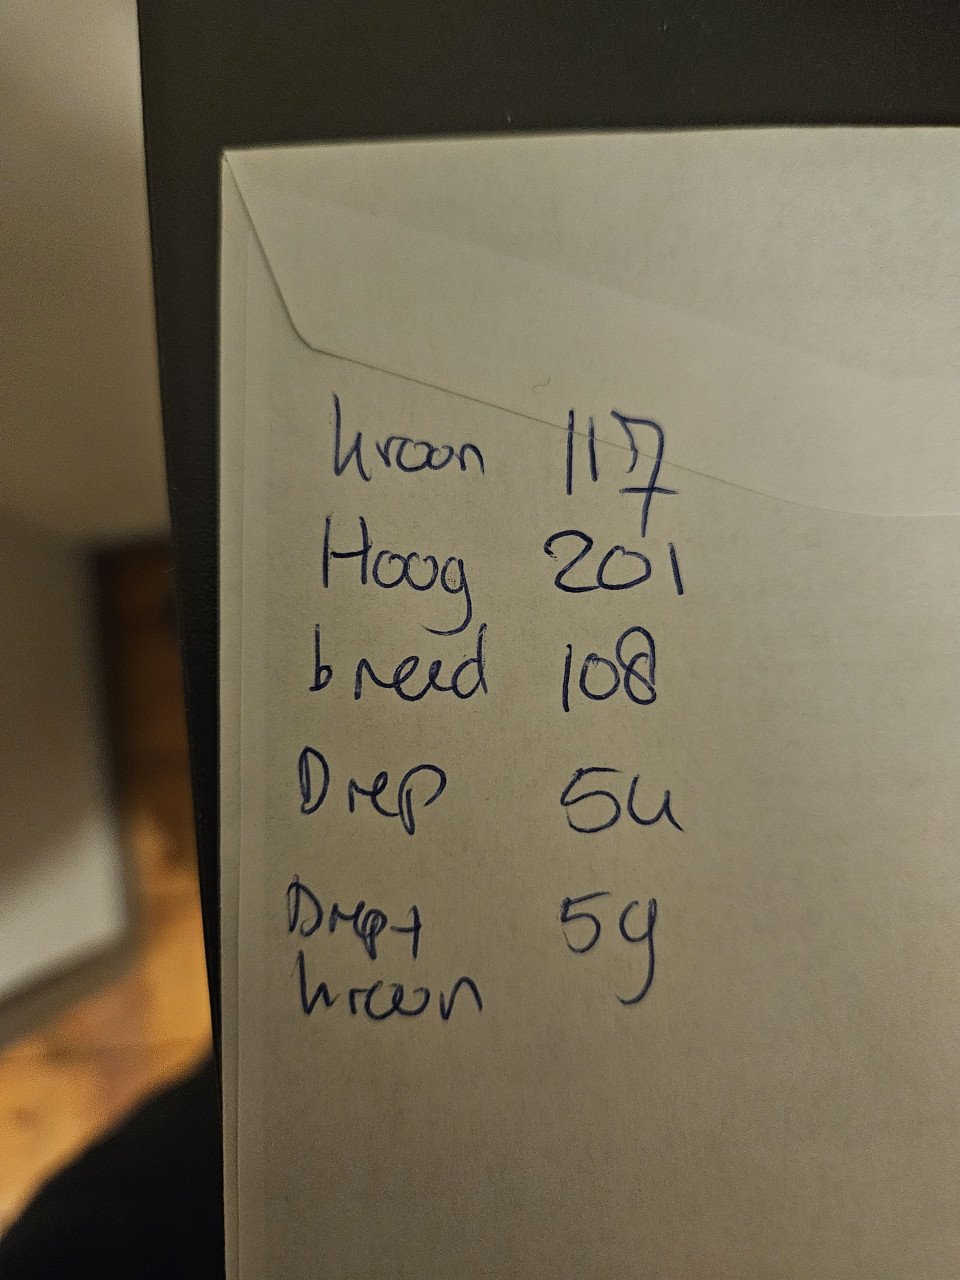 kroon 117
Hoog 201
breed 108
Diep 54
Diep+ 59
kroon